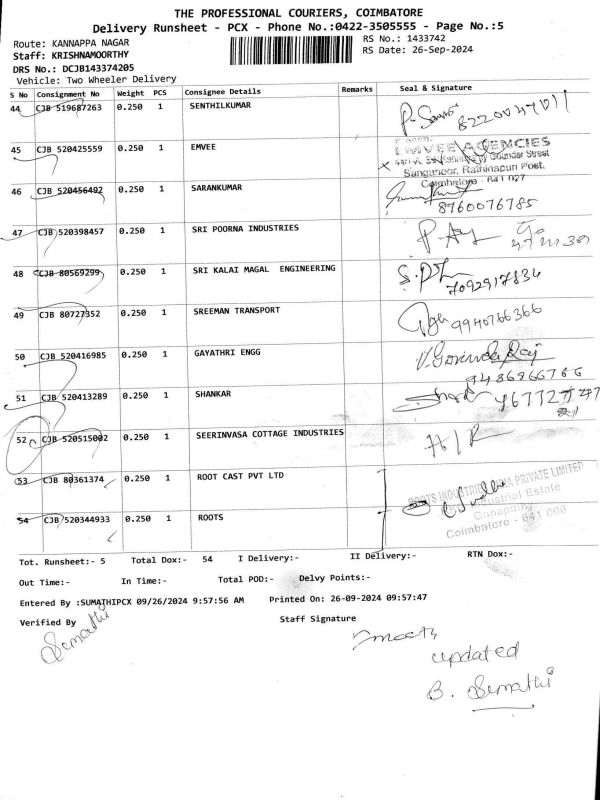 THE PROFESSIONAL COURIERS, COIMBATORE
Delivery Runsheet - PCX - Phone No.:0422-3505555 - Page No.:5
Route: KANNAPPA NAGAR
RS No.: 1433742
Staff: KRISHNAMOORTHY
RS Date: 26-Sep-2024
DRS No.: DCJB143374205
Vehicle: Two Wheeler Delivery
S No Consignment No Weight PCS Consignee Details Remarks Seal & Signature
44 CJB 519687263 0.250 1 SENTHILKUMAR
45 CJB 520425559 0.250 1 EMVEE
EMVEE AGENCIES
Sanganoor, Rathinapuri Post,
Coimbatore - 641 027
46 CJB 520456492 0.250 1 SARANKUMAR
8760076785
47 CJB 520398457 0.250 1 SRI POORNA INDUSTRIES
48 CCJB 80569299 0.250 1 SRI KALAI MAGAL ENGINEERING
7092917834
49 CJB 80727352 0.250 1 SREEMAN TRANSPORT
9940766366
50 CJB 520416985 0.250 1 GAYATHRI ENGG
V. Govinda Raj
9486866766
51 CJB 520413289 0.250 1 SHANKAR
52 CJB 520515002 0.250 1 SEERINVASA COTTAGE INDUSTRIES
H/R
53 CJB 80361374 0.250 1 ROOT CAST PVT LTD
ROOTS INDUSTRIES INDIA PRIVATE LIMITED
Industrial Estate
Ganapathy
Coimbatore - 641 006
54 CJB 520344933 0.250 1 ROOTS
Tot. Runsheet:- 5 Total Dox:- 54 I Delivery:- II Delivery:- RTN Dox:-
Out Time:- In Time:- Total POD:- Delvy Points:-
Entered By :SUMATHIPCX 09/26/2024 9:57:56 AM Printed On: 26-09-2024 09:57:47
Verified By Staff Signature
Sumathi
updated
B. Sumathi